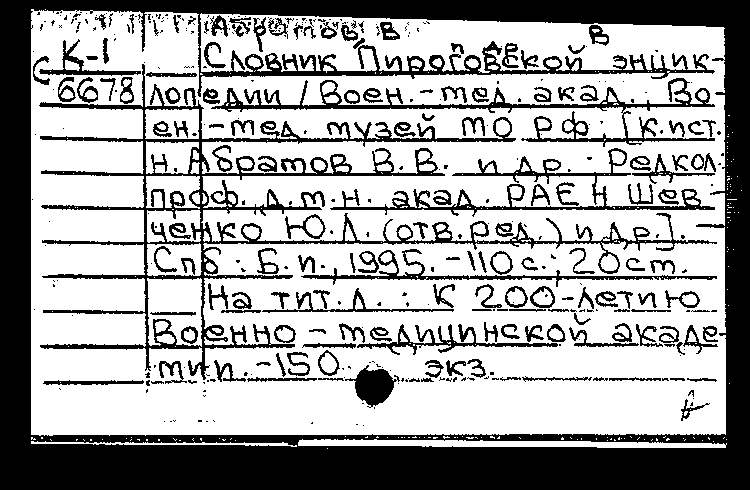 Абратов В В
К-1 Словник Пироговской энцик-
6678 лопедии / Воен.-мед. акад., Во-
ен.-мед. музей МО РФ; [К.ист.
н. Абратов В.В. и др.; Редкол:
проф., д.м.н., акад. РАЕН Шев-
ченко Ю.Л. (отв.ред.) и др.]. —
Спб: Б.и., 1995. - 110 с.; 20 ст.
На тит. л.: К 200-летию
Военно-медицинской акаде-
мии. - 150 экз.